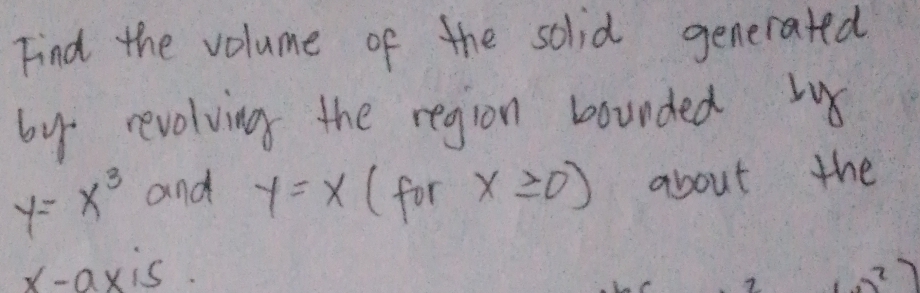 Find the volume of the solid generated
by revolving the region bounded by
y= x³ and y=x (for x ≥0) about the
x-axis.